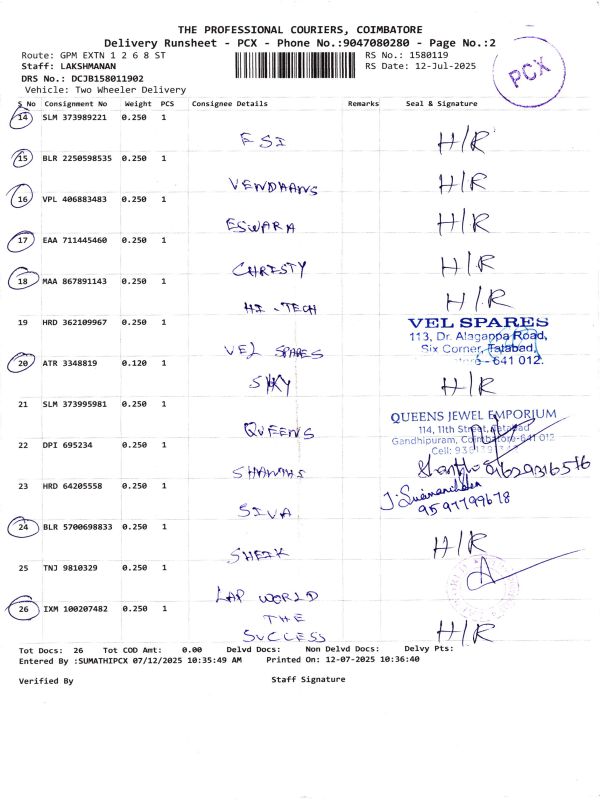 THE PROFESSIONAL COURIERS, COIMBATORE
Delivery Runsheet - PCX - Phone No.:9047080280 - Page No.:2
Route: GPM EXTN 1 2 6 8 ST RS No.: 1580119
Staff: LAKSHMANAN RS Date: 12-Jul-2025
DRS No.: DCJB158011902
Vehicle: Two Wheeler Delivery
PCX
S No Consignment No Weight PCS Consignee Details Remarks Seal & Signature
14 SLM 373989221 0.250 1
FSI H/R
15 BLR 2250598535 0.250 1
VENDHANS H/R
16 VPL 406883483 0.250 1
ESWARA H/R
17 EAA 711445460 0.250 1
CHRISTY H/R
18 MAA 867891143 0.250 1
HI-TECH H/R
19 HRD 362109967 0.250 1
VEL SPARES
VEL SPARES
113, Dr. Alagappa Road,
Six Corner, Tatabad,
641 012.
20 ATR 3348819 0.120 1
SKY H/R
21 SLM 373995981 0.250 1
QUEENS
QUEENS JEWEL EMPORIUM
114, 11th Street, Tatabad
Gandhipuram, Coimbatore-641 012
Cell:
22 DPI 695234 0.250 1
23 HRD 64205558 0.250 1
SIVA
9597799678
24 BLR 5700698833 0.250 1
SHEIK H/R
25 TNJ 9810329 0.250 1
LAP WORLD
26 IXM 100207482 0.250 1
THE
SUCCESS H/R
Tot Docs: 26 Tot COD Amt: 0.00 Delvd Docs: Non Delvd Docs: Delvy Pts:
Entered By :SUMATHIPCX 07/12/2025 10:35:49 AM Printed On: 12-07-2025 10:36:40
Verified By Staff Signature